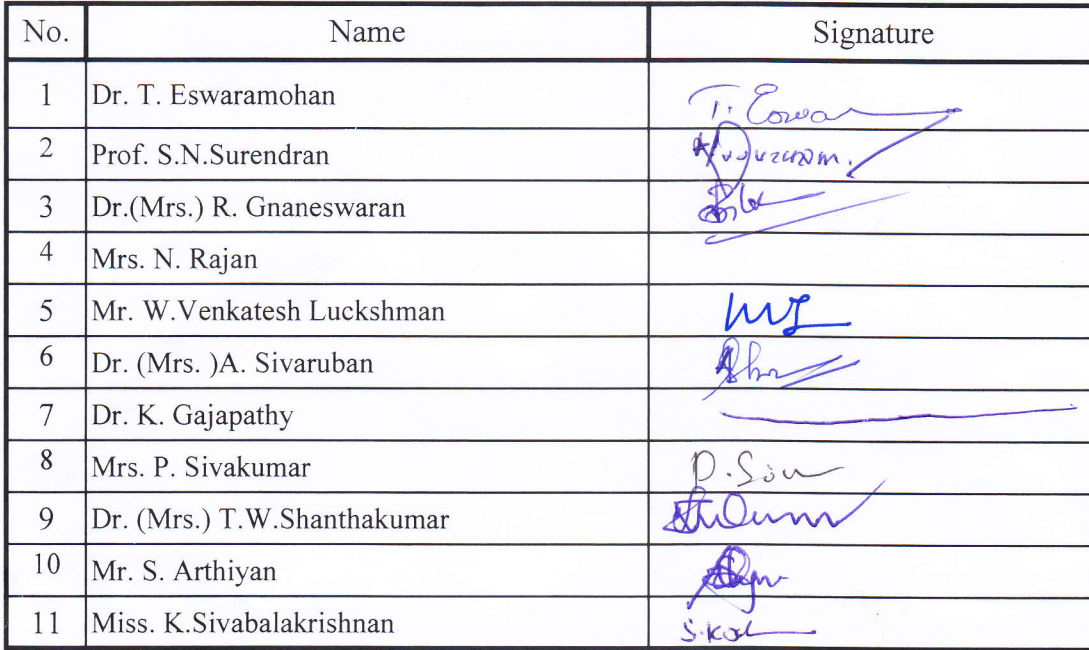 No. Name Signature
1 Dr. T. Eswaramohan T. Eswar
2 Prof. S.N.Surendran
3 Dr.(Mrs.) R. Gnaneswaran
4 Mrs. N. Rajan
5 Mr. W.Venkatesh Luckshman
6 Dr. (Mrs. )A. Sivaruban
7 Dr. K. Gajapathy
8 Mrs. P. Sivakumar
9 Dr. (Mrs.) T.W.Shanthakumar
10 Mr. S. Arthiyan
11 Miss. K.Sivabalakrishnan